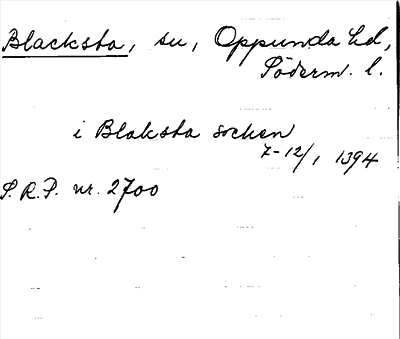 Blacksta, sn, Oppunda hd,
Söderm. l.
i Blaksta socken
7-12/1 1394
S.R.P. nr. 2700